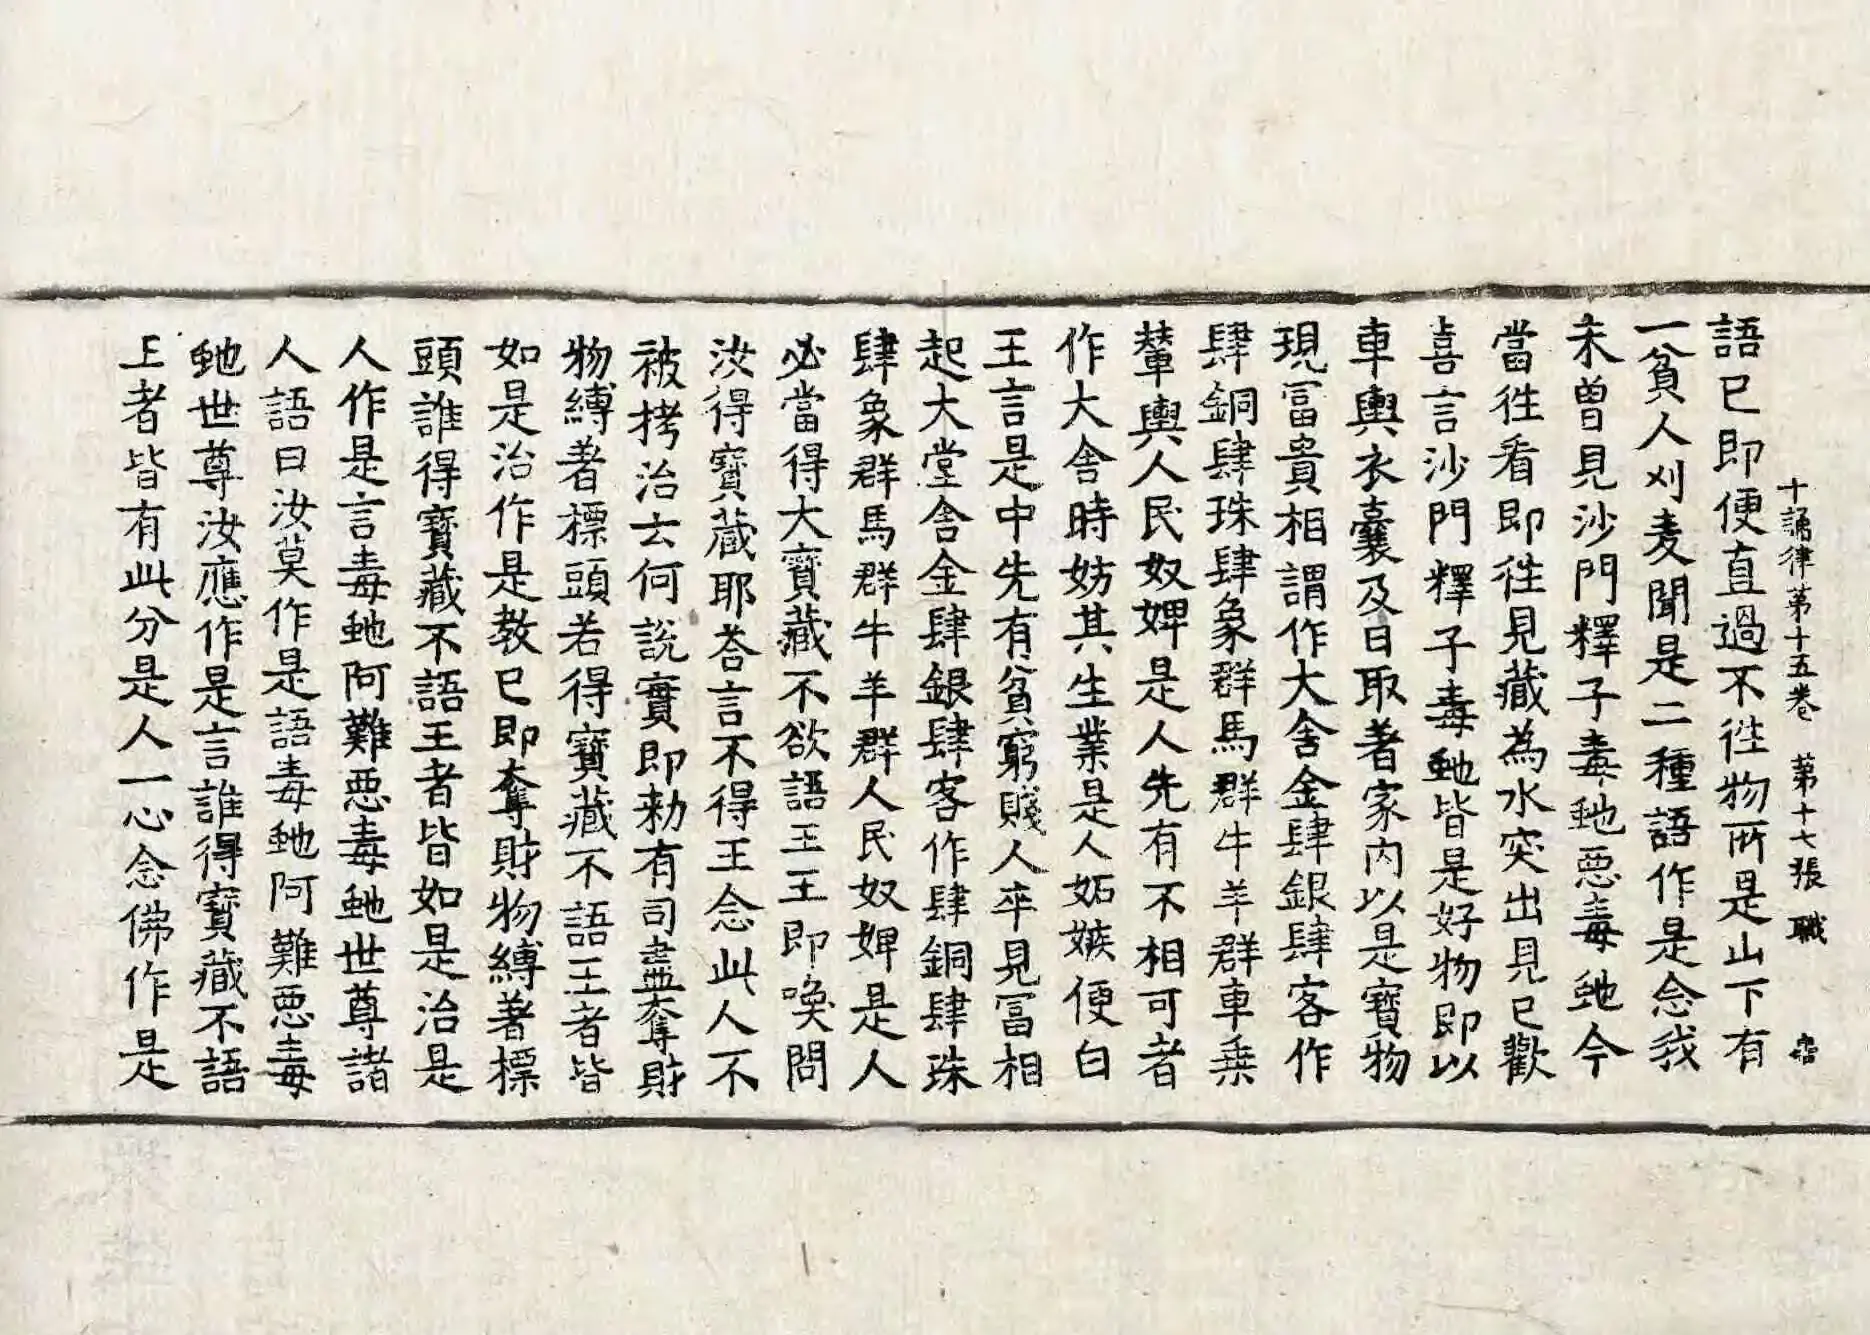 十誦律第十五卷 第十七張 職
語已即便直過不徃物所是山下有
一貧人刈麦聞是二種語作是念我
未曽見沙門釋子毒虵惡毒虵今
當徃看即徃見藏為水突出見已歡
喜言沙門釋子毒虵皆是好物即以
車輿衣囊及日取著家内以是寶物
現冨貴相謂作大舍金肆銀肆客作
肆銅肆珠肆象群馬群牛羊群車乗
輦輿人民奴婢是人先有不相可者
作大舍時妨其生業是人妬嫉便白
王言是中先有貧窮賤人卒見冨相
起大堂舍金肆銀肆客作肆銅肆珠
肆象群馬群牛羊群人民奴婢是人
必當得大寶藏不欲語王王即喚問
汝得寶藏耶荅言不得王念此人不
被拷治云何說實即勑有司盡奪財
物縛著標頭若得寶藏不語王者皆
如是治作是教已即奪財物縛著標
頭誰得寶藏不語王者皆如是治是
人作是言毒虵阿難惡毒虵世尊諸
人語曰汝莫作是語毒虵阿難惡毒
虵世尊汝應作是言誰得寶藏不語
王者皆有此分是人一心念佛作是